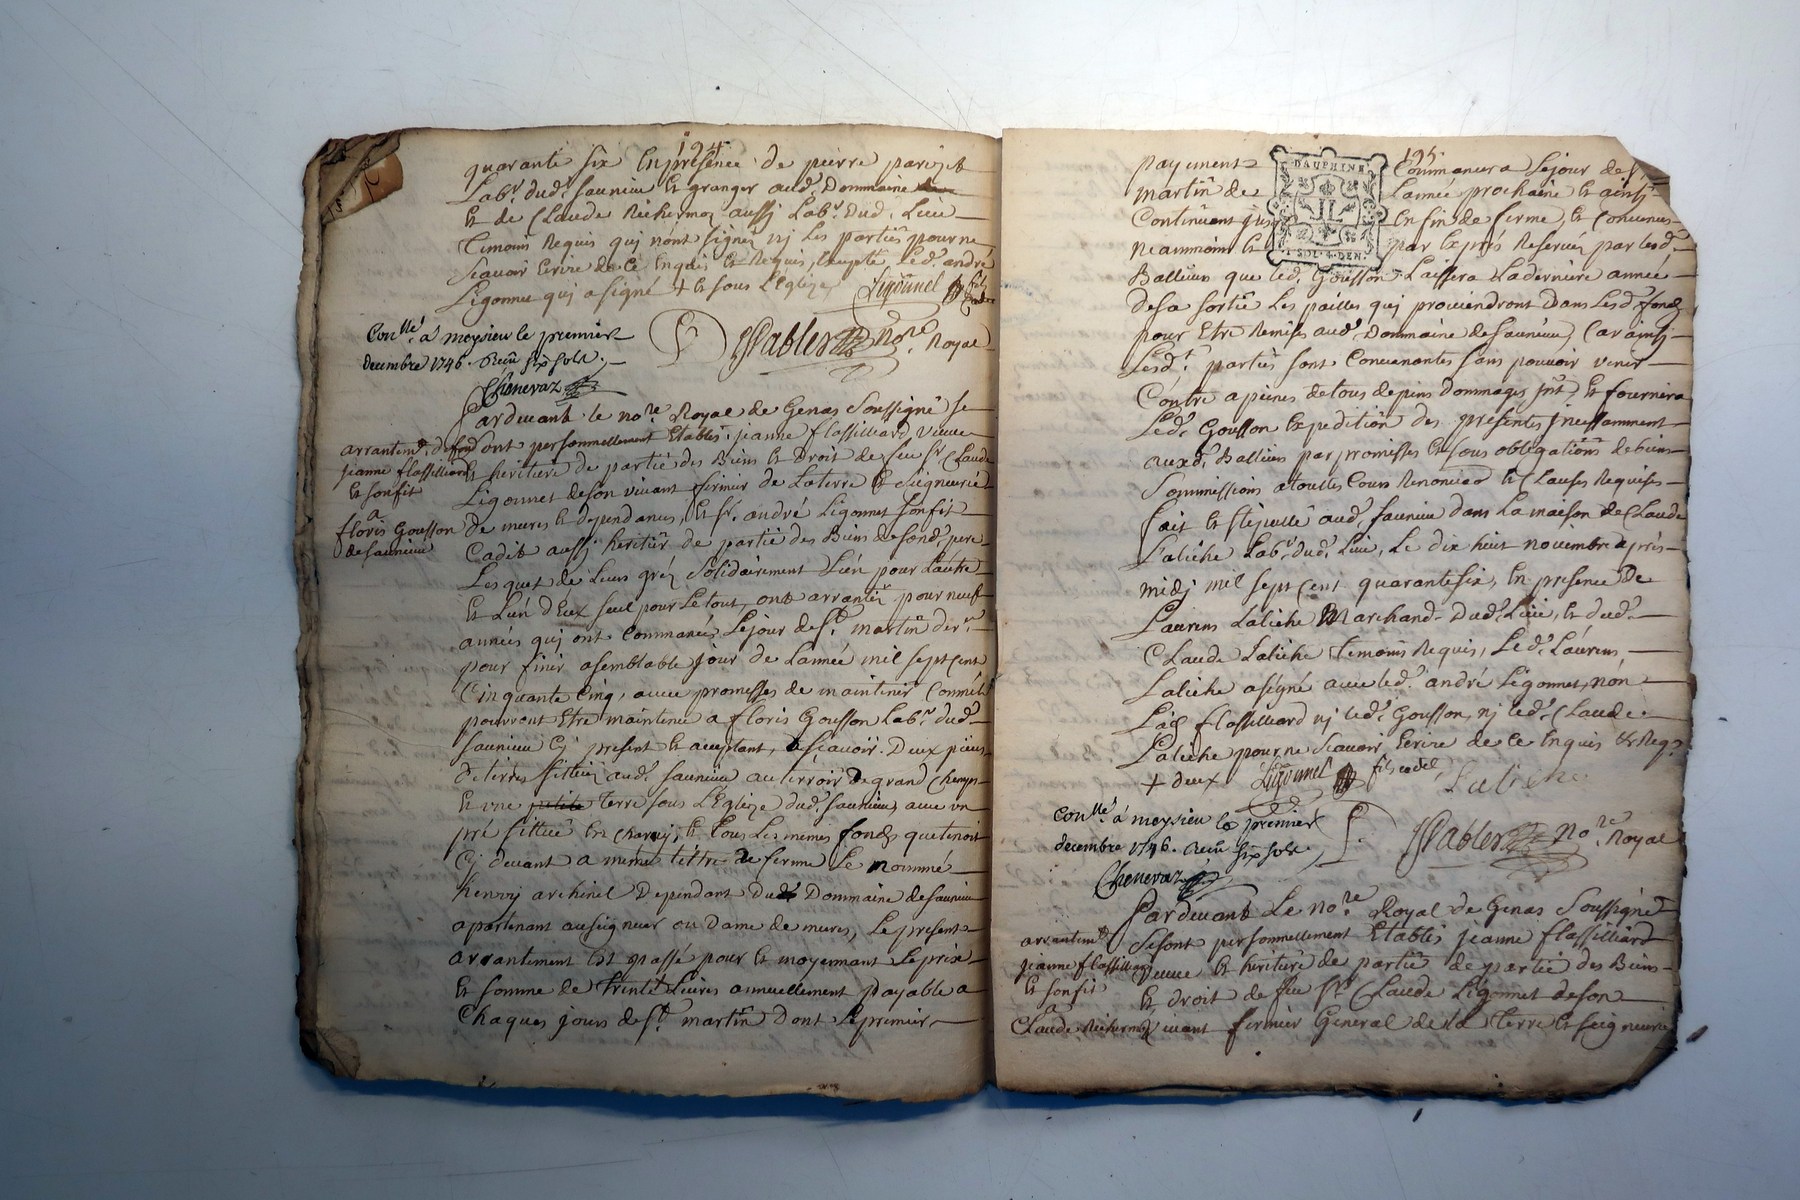 194
quarante six En presence de pierre parizet
Lab.r dud. saunieu Et granger aud. Dommaine
Et de Claude Richermoz aussy Lab.r Dud. Lieu
Temoins Requis quj n'ont signéz nj Les partiés pour ne
sçavoir Ecrire de Ce Enquis Et Requis, Excepté Led. andré
Ligonnet quj a signé + Et sous L'Eglize Ligonnet fils
Con.llé à meysieu le premier
decembre 1746. Reçu six sols.
Chenevaz
JPables No.re Royal
Pardevant le no.re Royal de Genas Soussigné se
arrantem.t de
jeanne flassilliard
Et son fils
a
floris Gousson
de saunieu
sont personnellement Etablis, jeanne flassilliard veuve
Et heritiere de partié des Biens Et droit de feu S.r Claude
Ligonnet de son vivant fermier de La terre Et seigneurié
De mures Et dependances, Et S.r andré Ligonnet son fils
Cadet aussj heritier de partié des Biens de sond. pere
Lesquels de Leurs gréz solidairement L'un pour L'autre
Et L'un d'Eux seul pour Le tout, ont arrantéz pour neuf
années quj ont Commancés Le jour de S.t martin der.r
pour finir a semblable jour de L'année mil sept Cent
Cinquante Cinq, avec promesses de maintenir Comme ils
pourront Etre maintenus a floris Gousson Lab.r dud.
saunieu Cj present Et acceptant, sçavoir. Deux pieces
de terres sittuéz aud. saunieu au terroir De grand Champ
Et une petite terre sous L'Eglize dud. saunieu, avec un
pré sittué En Charvj, Et tous Les memes fonds que tenoit
Cj devant a meme tittre de ferme Le nommé
henry archinel Dependant Dud. Dommaine de saunieu
apartenant au seigneur ou Dame de mures, Le present
arrantement Est passé pour Et moyennant Le prix
Et somme de trente Livres annuellement payable a
Chaques jours de S.t martin Dont Le premier
195.
DAUPHINE
1 SOL. 4 DEN.
payement Commancera Le jour de S.t
martin de L'année prochaine Et ainsj
Continuant jus En fin de ferme, Et Convenus
neammoins Et par Exprés Reservés par Lesd.
Bailleurs que Led. Gousson Laissera La derniere année
de sa sortié Les pailles quj proviendront Dans Lesd. fonds
pour Etre Remises aud. Dommaine de saunieu, Car ainsj
Lesd. partiés sont Convenantes sans pouvoir venir
Contre a peines de tous depens Dommages jnt., Et fournira
Led. Gousson Expedition des presentes jncessamment
auxd. Bailleurs par promesses Et sous obligations de biens
Soumissions a toutes Cours Renonciaõ Et Clauses Requises
fait Et stipullé aud. saunieu dans La maison de Claude
Laliche Lab.r dud. Lieu, Le dix huit novembre après
midj mil sept Cent quarante six, En presence De
Laurens Laliche Marchand Dud. Lieu, Et dud.
Claude Laliche temoins Requis, Led. Laurens
Laliche a signé avec Led. andré Ligonnet, non
Lad. flassilliard nj Led. Gousson, nj Led. Claude
Laliche pour ne sçavoir Ecrire de Ce Enquis Et Req.
+ deux Ligonnet fils cadet Laliche
Con.llé à meysieu le premier
decembre 1746. Reçu six sols
Chenevaz
JPables No.re Royal
Pardevant Le no.re Royal de Genas Soussigné
arrantem.t
jeanne flassilliard
Et son fils
a
Claude Richermoz
Se sont personnellement Etablis jeanne flassilliard
veuve Et heritiere de partié de partié des Biens
Et droit de feu S.r Claude Ligonnet de son
vivant fermier General de La terre Et seigneurie